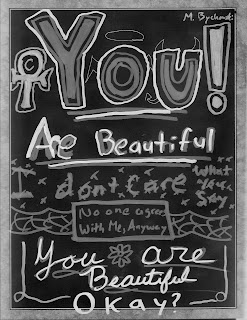 M. Bychowski
You!
Are Beautiful
I don't Care
What
You
Say
No one agrees
With Me, Anyway
You are
Beautiful
Okay?